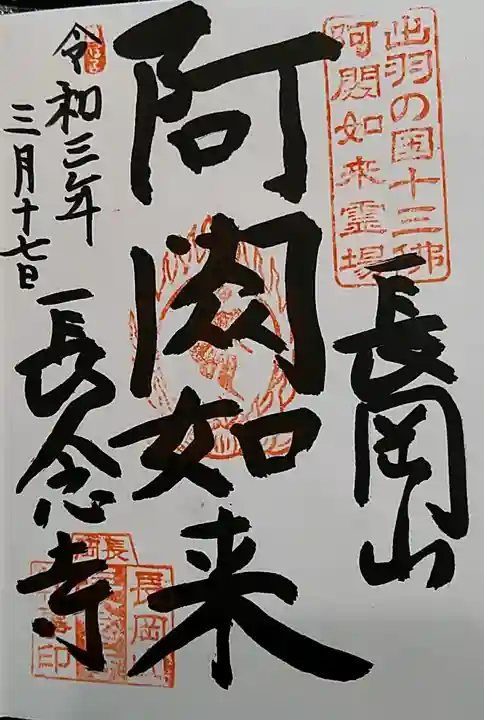 出羽の国十三佛
阿閦如来霊場
長岡山
阿閦如来
令和三年
三月十七日
長念寺
長岡山